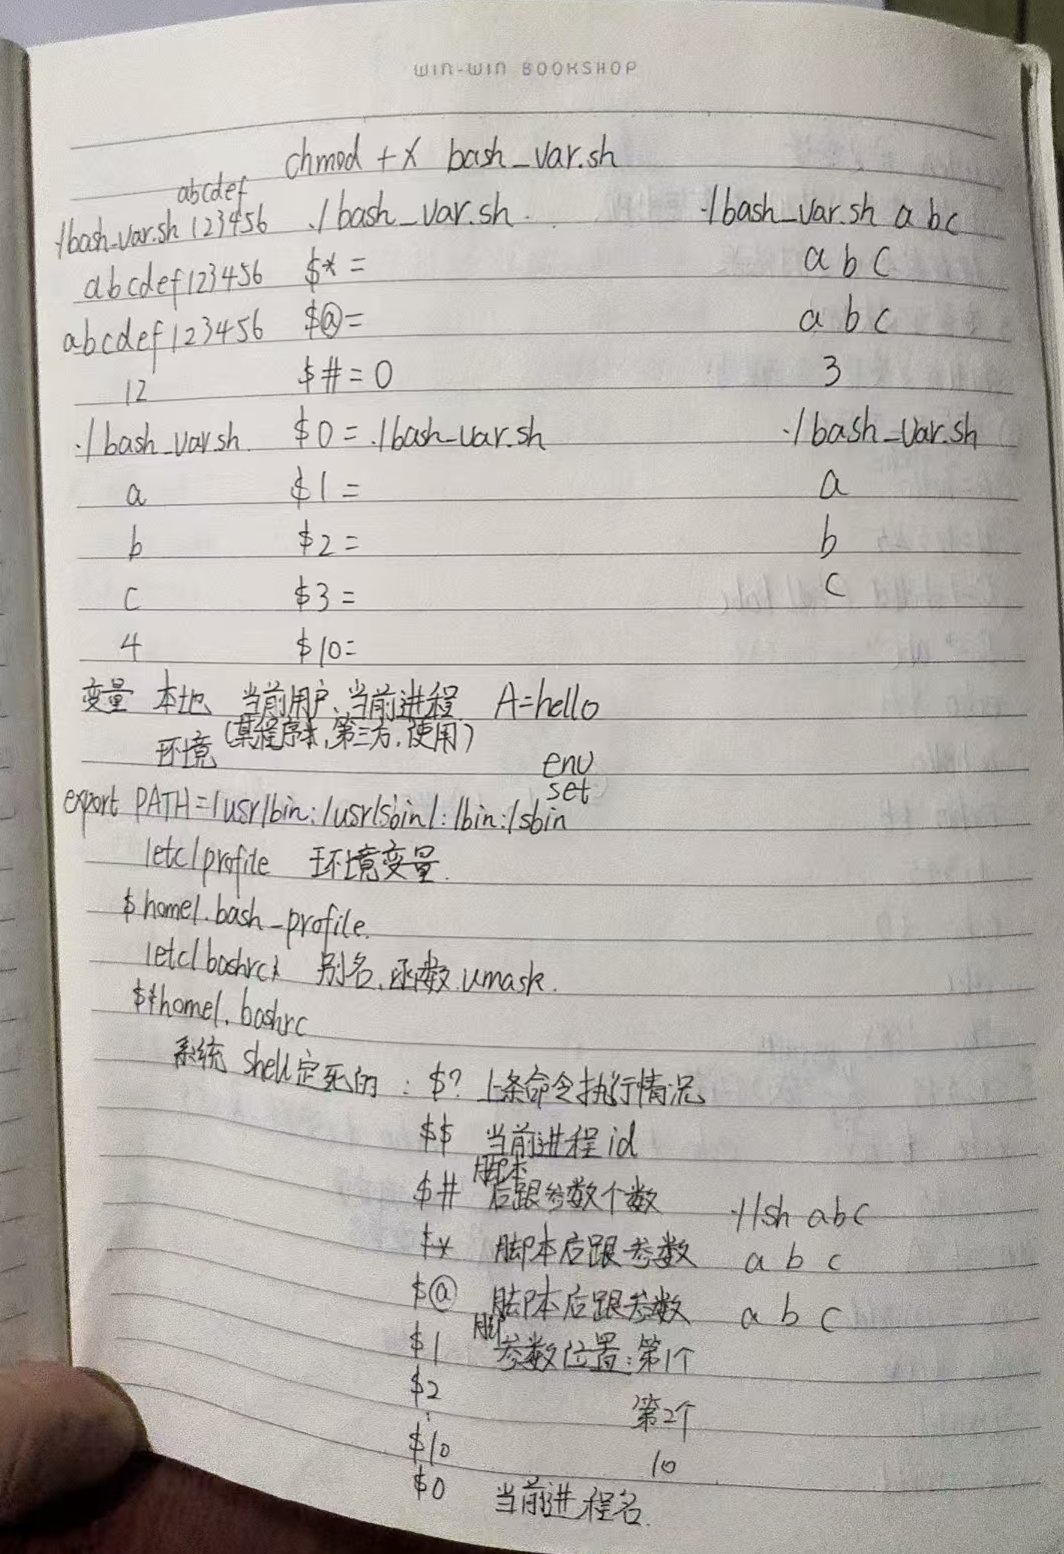 WIN-WIN BOOKSHOP
chmod +x bash_var.sh
abcdef
./bash_var.sh 123456 ./bash_var.sh. ./bash_var.sh a b c
abcdef123456 $*= a b c
abcdef123456 $@= a b c
12 $#=0 3
./bash_var.sh $0=./bash_var.sh ./bash_var.sh
a $1= a
b $2= b
c $3= c
4 $10=
变量 本地 当前用户、当前进程 A=hello
环境 (某程序,第三方,使用)
env
set
export PATH=/usr/bin:/usr/sbin/:/bin:/sbin
/etc/profile 环境变量.
$home/.bash_profile.
/etc/bashrc 别名、函数、umask.
$home/.bashrc
系统 shell定死的: $? 上条命令执行情况
$$ 当前进程id
脚本
$# 后跟参数个数 ./sh abc
$* 脚本后跟参数 a b c
$@ 脚本后跟参数 a b c
$1 参数位置:第1个
$2 第2个
$10 10
$0 当前进程名.